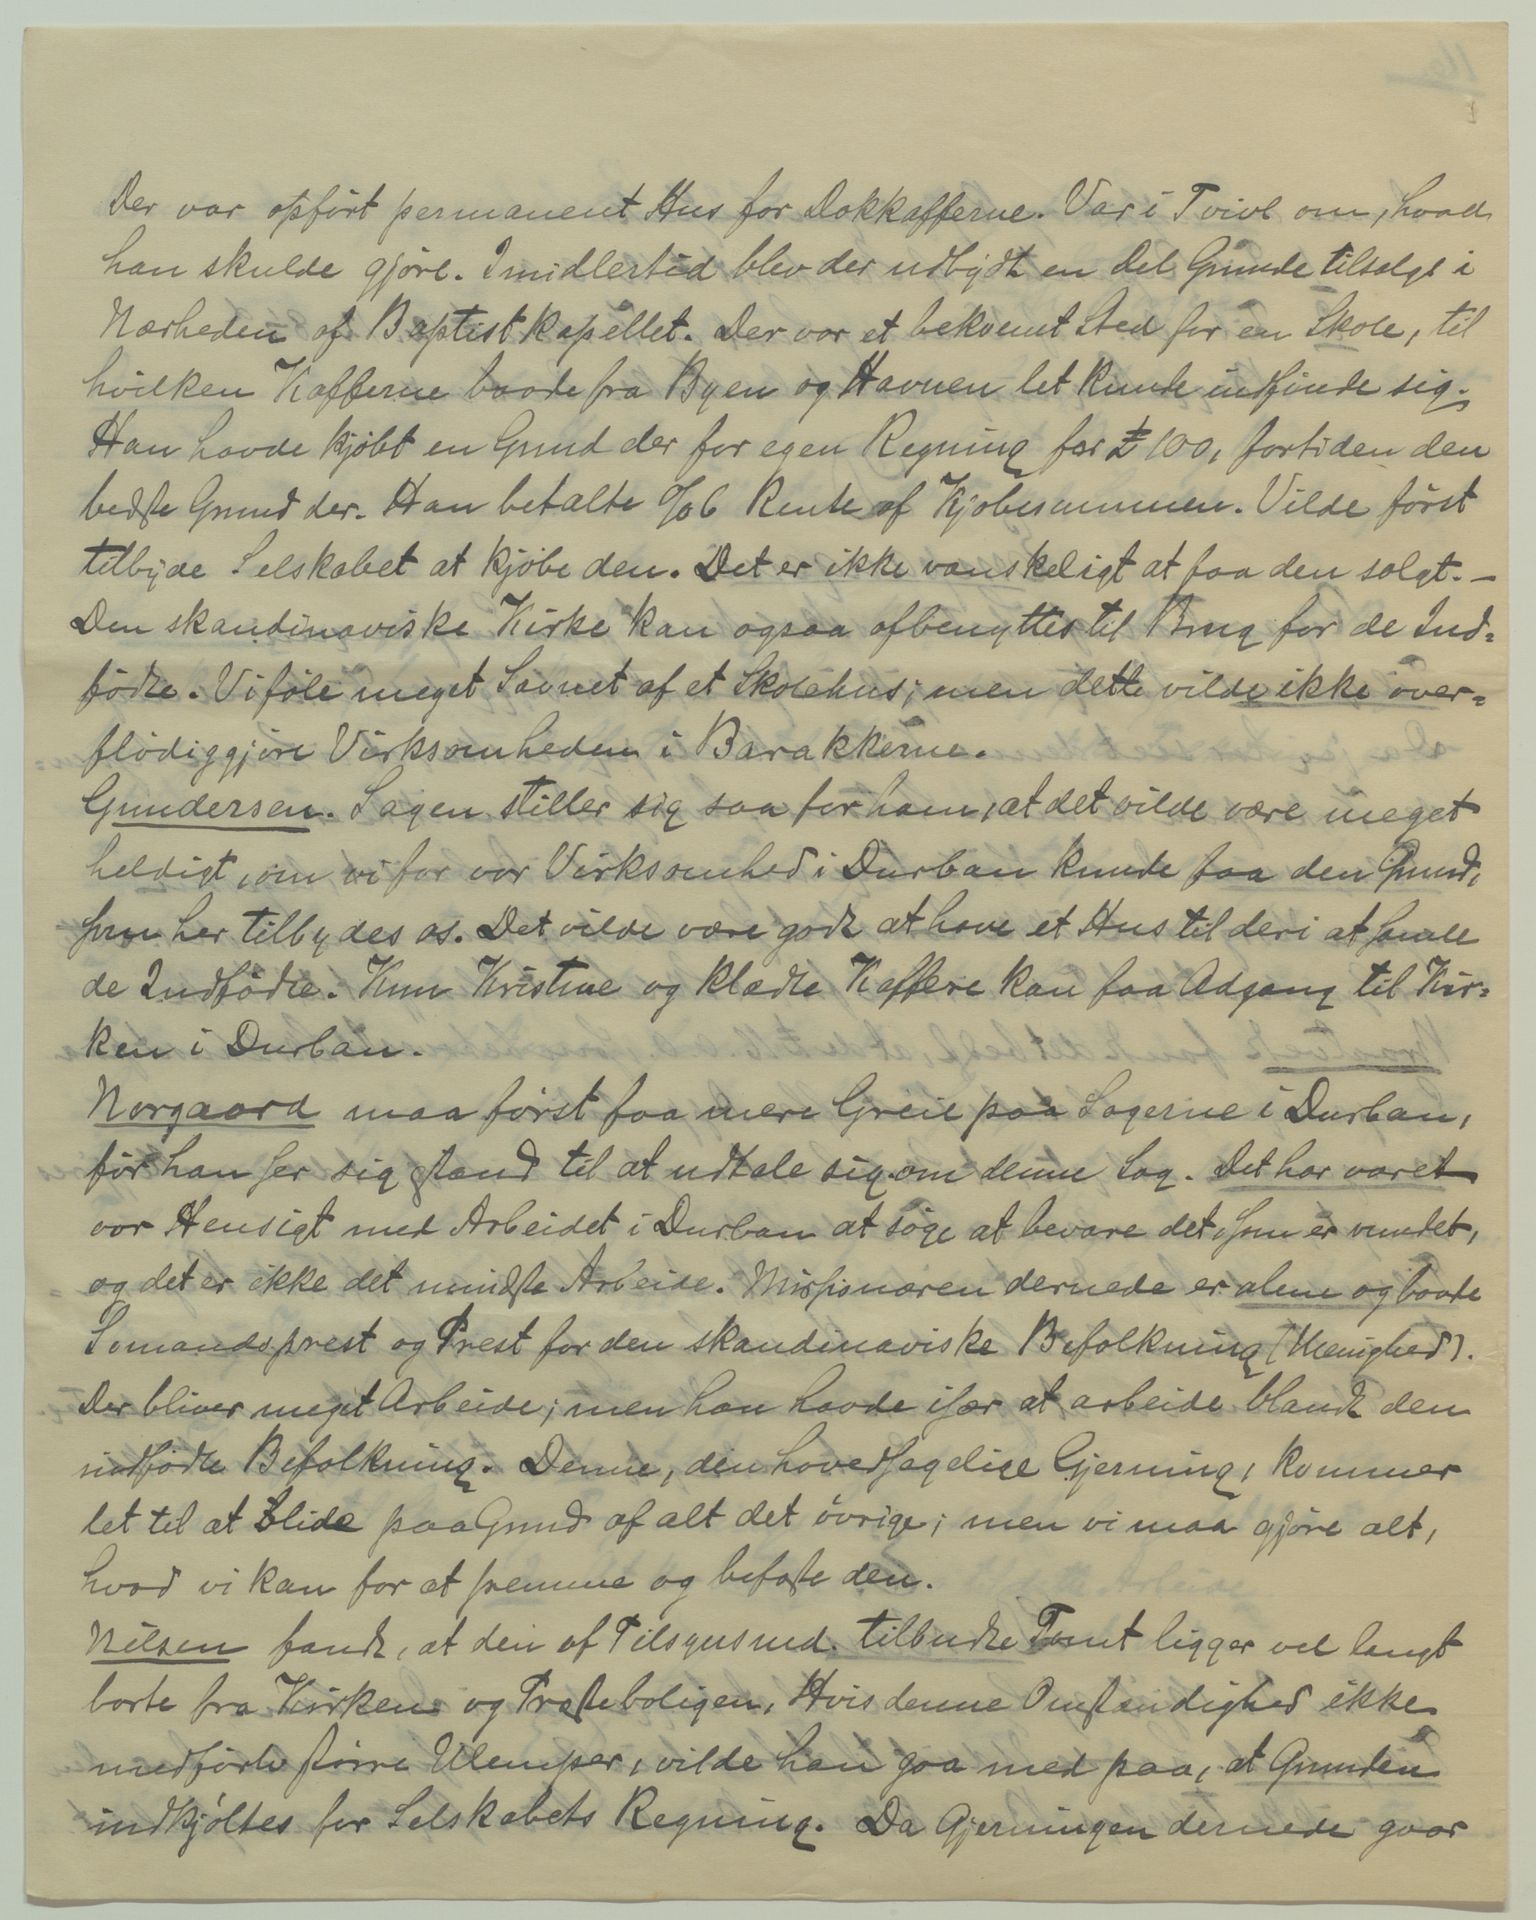 Der var opført permanent Hus for Dokkafferne. Var i Tvivl om, hvad
han skulde gjøre. Imidlertid blev der udbydt en Del Grunde tilsalgs i
Nærheden af Baptistkapellet. Der var et bekvemt Sted for en Skole, til
hvilken Kafferne baade fra Byen og Havnen let kunde indfinde sig.
Han havde kjøbt en Grund der for egen Regning for £ 100, fortiden den
bedste Grund der. Han betalte % 6 Rente af Kjøbesummen. Vilde først
tilbyde Selskabet at kjøbe den. Det er ikke vanskeligt at faa den solgt. —
Den skandinaviske Kirke kan ogsaa afbenyttes til Brug for de Ind=
fødte. Vi føle meget Savnet af et Skolehus; men dette vilde ikke over=
flødiggjøre Virksomheden i Barakkerne.
Gundersen. Sagen stiller sig saa for ham, at det vilde være meget
heldigt, om vi for vor Virksomhed i Durban kunde faa den Grund,
som her tilbydes os. Det vilde være godt at have et Hus til deri at samle
de Indfødte. Kun Kristne og klædte Kaffere kan faa Adgang til Kir=
ken i Durban.
Norgaard maa først faa mere Greie paa Sagerne i Durban,
før han ser sig istand til at udtale sig om denne Sag. Det har været
vor Hensigt med Arbeidet i Durban at søge at bevare det, som er vundet,
og det er ikke det mindste Arbeide. Missionæren dernede er alene og baade
Sømandsprest og Prest for den skandinaviske Befolkning (Menighed).
Der bliver meget Arbeide; men han havde især at arbeide blandt den
indfødte Befolkning. Denne, den hovedsagelige Gjerning, kommer
let til at lide paa Grund af alt det øvrige; men vi maa gjøre alt,
hvad vi kan for at fremme og befæste den.
Nilsen fandt, at den af Tilsynsmd. tilbudte Tomt ligger vel langt
borte fra Kirken og Presteboligen. Hvis denne Omstændighed ikke
medførte større Ulemper, vilde han gaa med paa, at Grunden
indkjøbtes for Selskabets Regning. Da Gjerningen dernede gaar